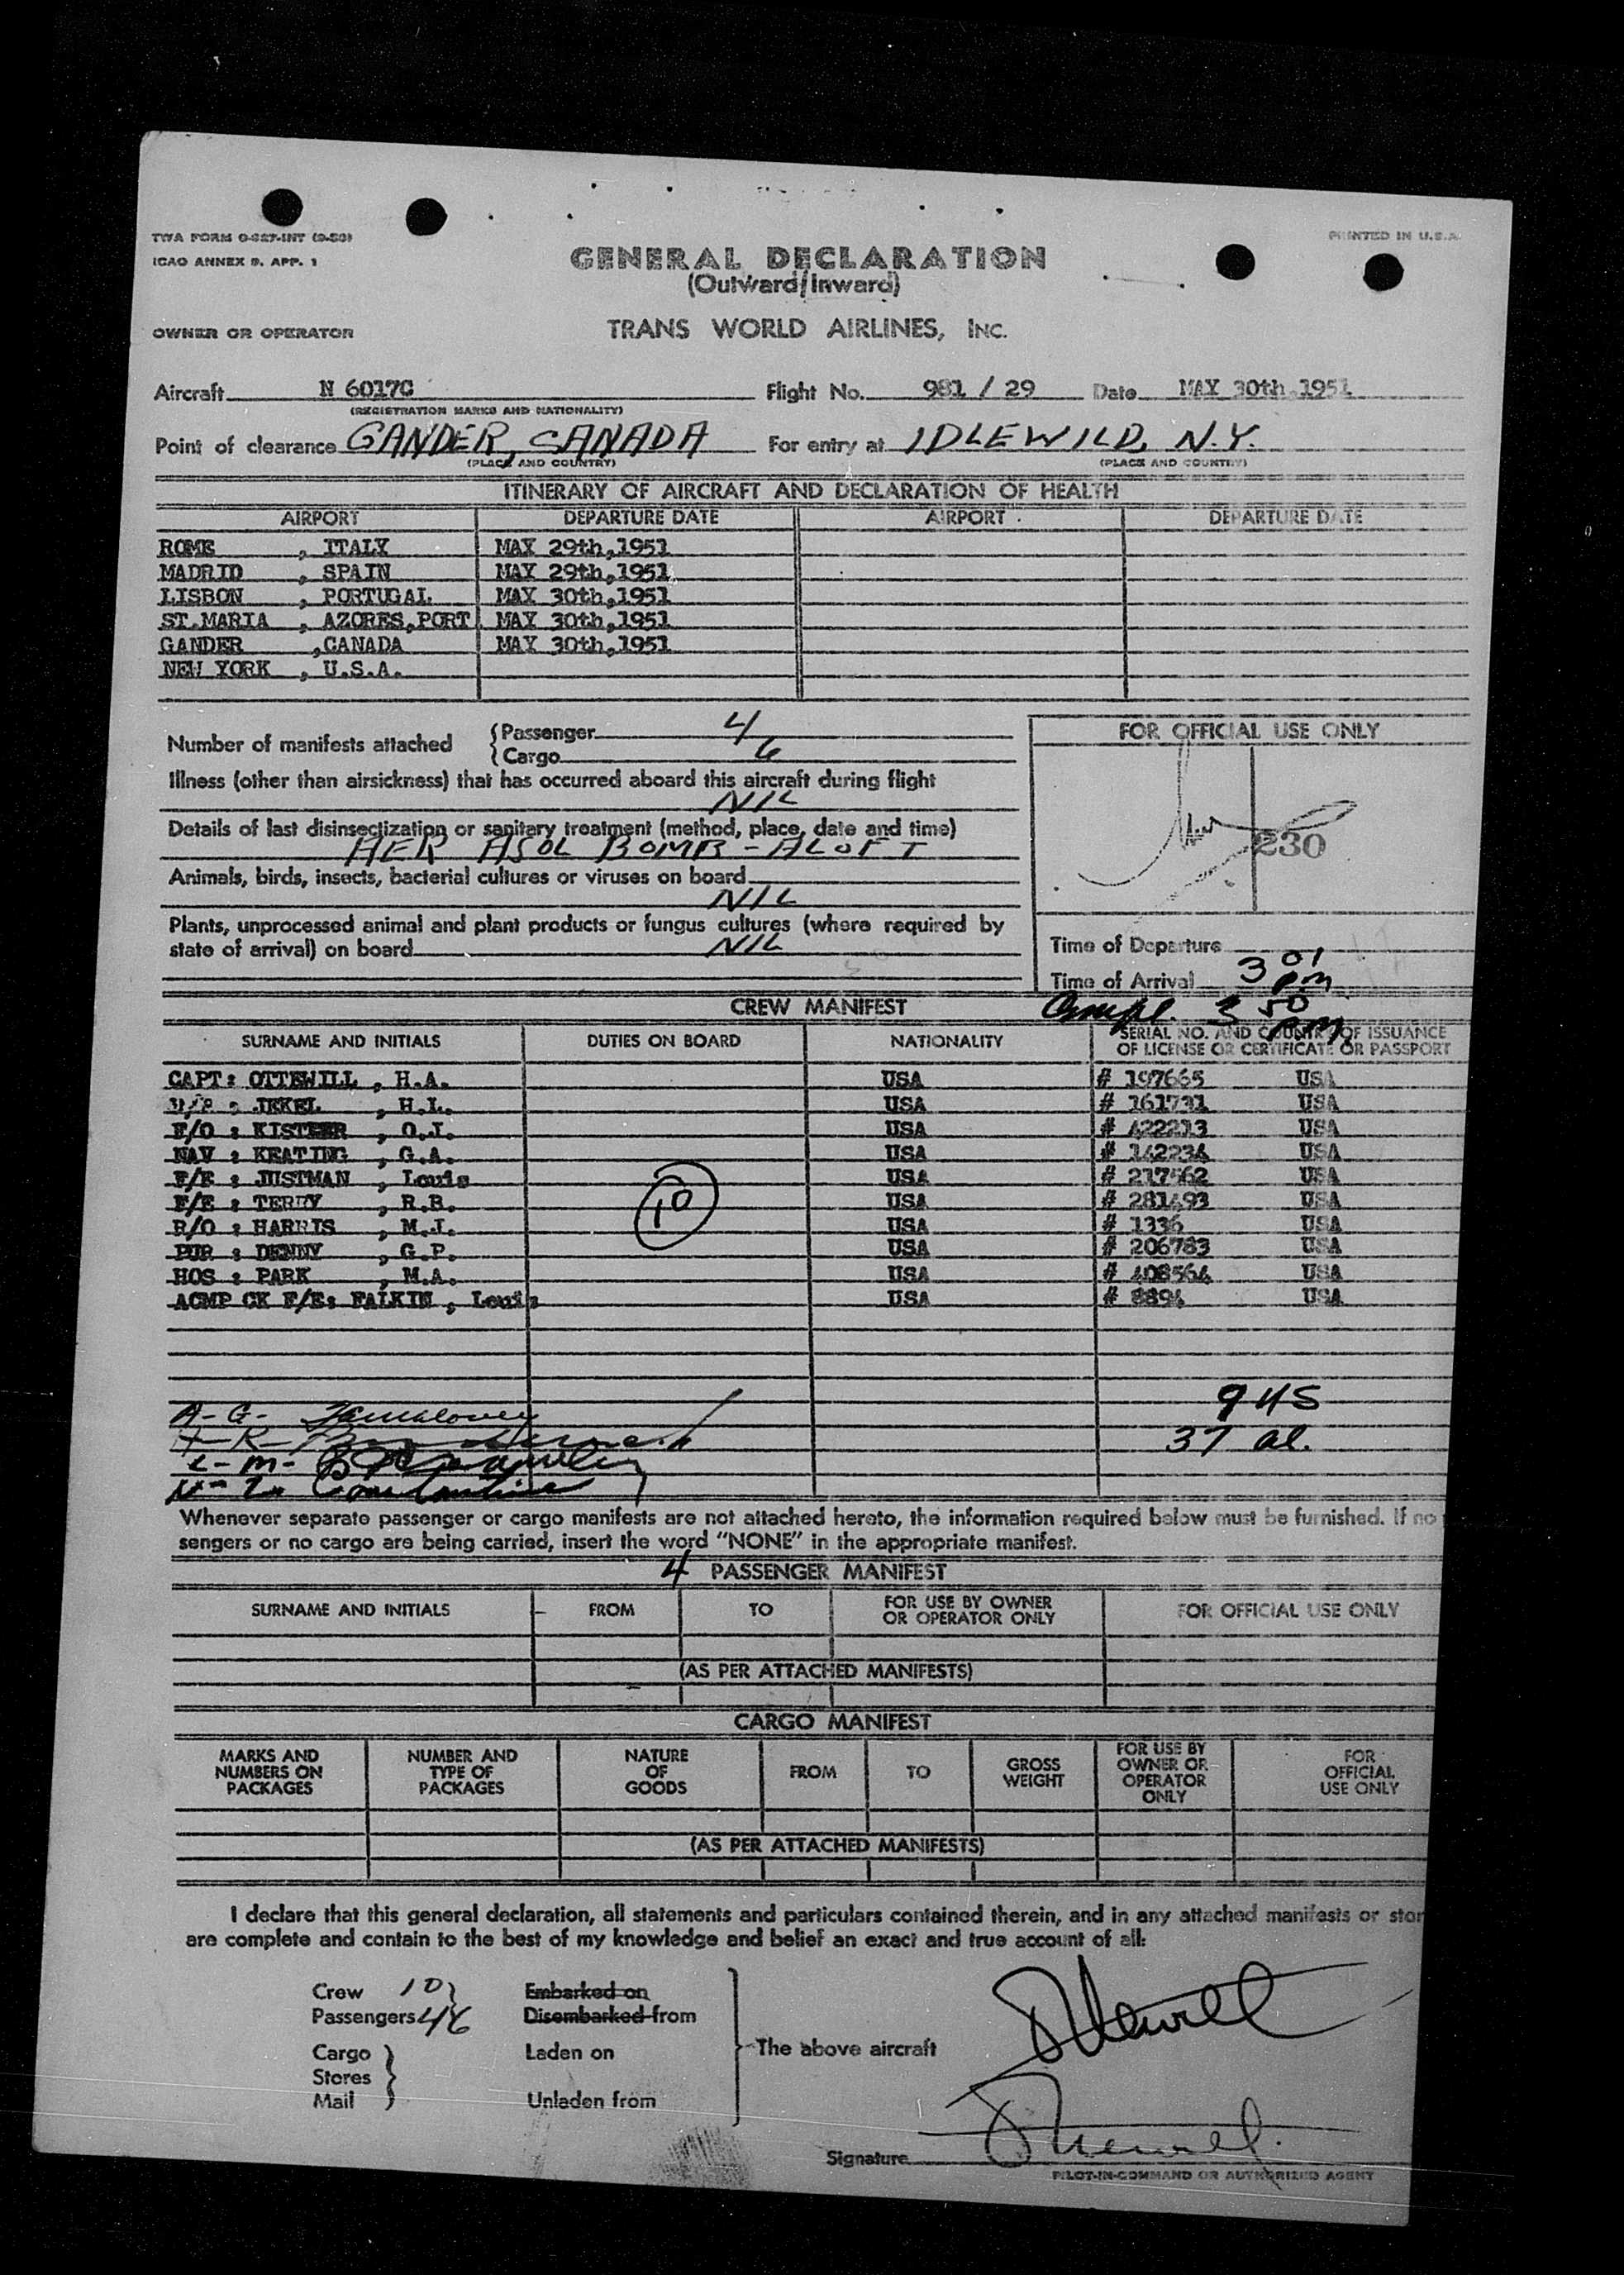 TWA FORM O-327-INT (9-50)
ICAO ANNEX 9. APP. 1
PRINTED IN U.S.A.
GENERAL DECLARATION
(Outward/Inward)
OWNER OR OPERATOR TRANS WORLD AIRLINES, INC.
Aircraft N 6017C Flight No. 981 / 29 Date MAY 30th,1951
(REGISTRATION MARKS AND NATIONALITY)
Point of clearance GANDER, CANADA For entry at IDLEWILD, N.Y.
(PLACE AND COUNTRY) (PLACE AND COUNTRY)
ITINERARY OF AIRCRAFT AND DECLARATION OF HEALTH
AIRPORT DEPARTURE DATE AIRPORT DEPARTURE DATE
ROME , ITALY MAY 29th,1951
MADRID , SPAIN MAY 29th,1951
LISBON , PORTUGAL MAY 30th,1951
ST.MARIA , AZORES,PORT MAY 30th,1951
GANDER ,CANADA MAY 30th,1951
NEW YORK , U.S.A.
Number of manifests attached { Passenger 4
{ Cargo 6
FOR OFFICIAL USE ONLY
Illness (other than airsickness) that has occurred aboard this aircraft during flight
NIL
Details of last disinsectization or sanitary treatment (method, place, date and time)
AER ASOL BOMB - ALOFT
230
Animals, birds, insects, bacterial cultures or viruses on board
NIL
Plants, unprocessed animal and plant products or fungus cultures (where required by
state of arrival) on board NIL
Time of Departure
Time of Arrival 3 01 PM
Compl. 3 50 PM
CREW MANIFEST
SURNAME AND INITIALS DUTIES ON BOARD NATIONALITY SERIAL NO. AND COUNTRY OF ISSUANCE
OF LICENSE OR CERTIFICATE OR PASSPORT
CAPT: OTTEWILL , H.A. USA # 197665 USA
JEKEL , H.L. USA # 161731 USA
F/O : KISTLER , O.J. USA # 422213 USA
NAV : KEATING , G.A. USA # 142234 USA
F/E : JUSTMAN , Louis USA # 217562 USA
F/E : TERRY , R.B. USA # 281493 USA
10
R/O : HARRIS , M.J. USA # 1336 USA
PUR : DENNY , G.P. USA # 206783 USA
HOS : PARK , M.A. USA # 408564 USA
ACMP CK F/E: FALKIN , Louis USA # 8894 USA
945
A-G-
37 al.
Whenever separate passenger or cargo manifests are not attached hereto, the information required below must be furnished. If no
sengers or no cargo are being carried, insert the word "NONE" in the appropriate manifest.
4 PASSENGER MANIFEST
SURNAME AND INITIALS FROM TO FOR USE BY OWNER OR OPERATOR ONLY FOR OFFICIAL USE ONLY
(AS PER ATTACHED MANIFESTS)
CARGO MANIFEST
MARKS AND NUMBERS ON PACKAGES NUMBER AND TYPE OF PACKAGES NATURE OF GOODS FROM TO GROSS WEIGHT FOR USE BY OWNER OR OPERATOR ONLY FOR OFFICIAL USE ONLY
(AS PER ATTACHED MANIFESTS)
I declare that this general declaration, all statements and particulars contained therein, and in any attached manifests or stor
are complete and contain to the best of my knowledge and belief an exact and true account of all:
Crew 10 Embarked on
Passengers 46 Disembarked from
Cargo Laden on The above aircraft
Stores
Mail Unladen from
Signature
PILOT-IN-COMMAND OR AUTHORIZED AGENT